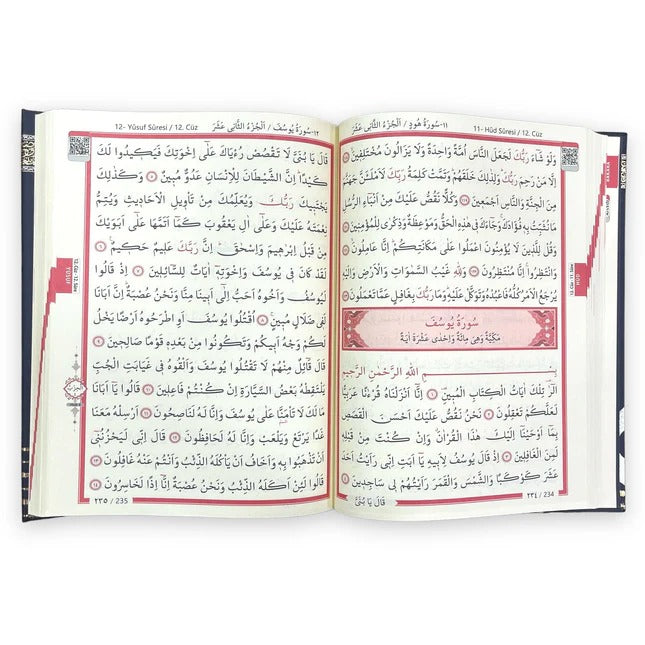 ١١-سُورَةُ هُودٍ / اَلْجُزْءُ الثَّانِى عَشَرَ 11- Hûd Sûresi / 12. Cüz
وَلَوْ شَٓاءَ رَبُّكَ لَجَعَلَ النَّاسَ اُمَّةً وَاحِدَةً وَلَا يَزَالُونَ مُخْتَلِفِينَۙ ﴿١١٨﴾
اِلَّا مَنْ رَحِمَ رَبُّكَۜ وَلِذٰلِكَ خَلَقَهُمْۜ وَتَمَّتْ كَلِمَةُ رَبِّكَ لَاَمْلَـَٔنَّ جَهَنَّمَ
مِنَ الْجِنَّةِ وَالنَّاسِ اَجْمَعِينَ ﴿١١٩﴾ وَكُلًّا نَقُصُّ عَلَيْكَ مِنْ اَنْبَٓاءِ الرُّسُلِ
مَا نُثَبِّتُ بِهِ فُؤٰادَكَۚ وَجَٓاءَكَ فِى هٰذِهِ الْحَقُّ وَمَوْعِظَةٌ وَذِكْرٰى لِلْمُؤْمِنِينَ ﴿١٢٠﴾
وَقُلْ لِلَّذِينَ لَا يُؤْمِنُونَ اعْمَلُوا عَلٰى مَكَانَتِكُمْۜ اِنَّا عَامِلُونَۙ ﴿١٢١﴾
وَانْتَظِرُواۚ اِنَّا مُنْتَظِرُونَ ﴿١٢٢﴾ وَلِلّٰهِ غَيْبُ السَّمٰوَاتِ وَالْاَرْضِ وَاِلَيْهِ
يُرْجَعُ الْاَمْرُ كُلُّهُ فَاعْبُدْهُ وَتَوَكَّلْ عَلَيْهِۜ وَمَا رَبُّكَ بِغَافِلٍ عَمَّا تَعْمَلُونَ ﴿١٢٣﴾
سُورَةُ يُوسُفَ
مَكِّيَّةٌ وَهِىَ مِائَةٌ وَاِحْدٰى عَشْرَةَ اٰيَةً
بِسْمِ اللّٰهِ الرَّحْمٰنِ الرَّحِيمِ
الٓرٰ۠ تِلْكَ اٰيَاتُ الْكِتَابِ الْمُبِينِ ﴿١﴾ اِنَّٓا اَنْزَلْنَاهُ قُرْءٰنًا عَرَبِيًّا
لَعَلَّكُمْ تَعْقِلُونَ ﴿٢﴾ نَحْنُ نَقُصُّ عَلَيْكَ اَحْسَنَ الْقَصَصِ
بِمَٓا اَوْحَيْنَٓا اِلَيْكَ هٰذَا الْقُرْاٰنَۗ وَاِنْ كُنْتَ مِنْ قَبْلِهِ
لَمِنَ الْغَافِلِينَ ﴿٣﴾ اِذْ قَالَ يُوسُفُ لِاَبِيهِ يَٓا اَبَتِ اِنِّى رَاَيْتُ اَحَدَ
عَشَرَ كَوْكَبًا وَالشَّمْسَ وَالْقَمَرَ رَاَيْتُهُمْ لِى سَاجِدِينَ ﴿٤﴾
٢٣٤ / 234
قَالَ يَا بُنَىَّ
BAKARA
HÛD
١٢-سُورَةُ يُوسُفَ / اَلْجُزْءُ الثَّانِى عَشَرَ 12- Yûsuf Sûresi / 12. Cüz
قَالَ يَا بُنَىَّ لَا تَقْصُصْ رُءْيَاكَ عَلٰٓى اِخْوَتِكَ فَيَكِيدُوا لَكَ
كَيْدًاۜ اِنَّ الشَّيْطَانَ لِلْاِنْسَانِ عَدُوٌّ مُبِينٌ ﴿٥﴾ وَكَذٰلِكَ
يَجْتَبِيكَ رَبُّكَ وَيُعَلِّمُكَ مِنْ تَأْوِيلِ الْاَحَادِيثِ وَيُتِمُّ
نِعْمَتَهُ عَلَيْكَ وَعَلٰٓى اٰلِ يَعْقُوبَ كَمَٓا اَتَمَّهَا عَلٰٓى اَبَوَيْكَ
مِنْ قَبْلُ اِبْرٰهِيمَ وَاِسْحٰقَۜ اِنَّ رَبَّكَ عَلِيمٌ حَكِيمٌ۟ ﴿٦﴾
لَقَدْ كَانَ فِى يُوسُفَ وَاِخْوَتِهِٓ اٰيَاتٌ لِلسَّٓائِلِينَ ﴿٧﴾ اِذْ قَالُوا
لَيُوسُفُ وَاَخُوهُ اَحَبُّ اِلٰٓى اَبِينَا مِنَّا وَنَحْنُ عُصْبَةٌۜ اِنَّ اَبَانَا
لَفِى ضَلَالٍ مُبِينٍۚ ﴿٨﴾ اُقْتُلُوا يُوسُفَ اَوِ اطْرَحُوهُ اَرْضًا يَخْلُ
لَكُمْ وَجْهُ اَبِيكُمْ وَتَكُونُوا مِنْ بَعْدِهِ قَوْمًا صَالِحِينَ ﴿٩﴾
قَالَ قَٓائِلٌ مِنْهُمْ لَا تَقْتُلُوا يُوسُفَ وَاَلْقُوهُ فِى غَيَابَتِ الْجُبِّ
يَلْتَقِطْهُ بَعْضُ السَّيَّارَةِ اِنْ كُنْتُمْ فَاعِلِينَ ﴿١٠﴾ قَالُوا يَٓا اَبَانَا
مَا لَكَ لَا تَأْمَنَّا عَلٰى يُوسُفَ وَاِنَّا لَهُ لَنَاصِحُونَ ﴿١١﴾ اَرْسِلْهُ مَعَنَا
غَدًا يَرْتَعْ وَيَلْعَبْ وَاِنَّا لَهُ لَحَافِظُونَ ﴿١٢﴾ قَالَ اِنِّى لَيَحْزُنُنِٓى
اَنْ تَذْهَبُوا بِهِ وَاَخَافُ اَنْ يَأْكُلَهُ الذِّئْبُ وَاَنْتُمْ عَنْهُ غَافِلُونَ ﴿١٣﴾
قَالُوا لَئِنْ اَكَلَهُ الذِّئْبُ وَنَحْنُ عُصْبَةٌ اِنَّٓا اِذًا لَخَاسِرُونَ ﴿١٤﴾
٢٣٥ / 235
YUSUF